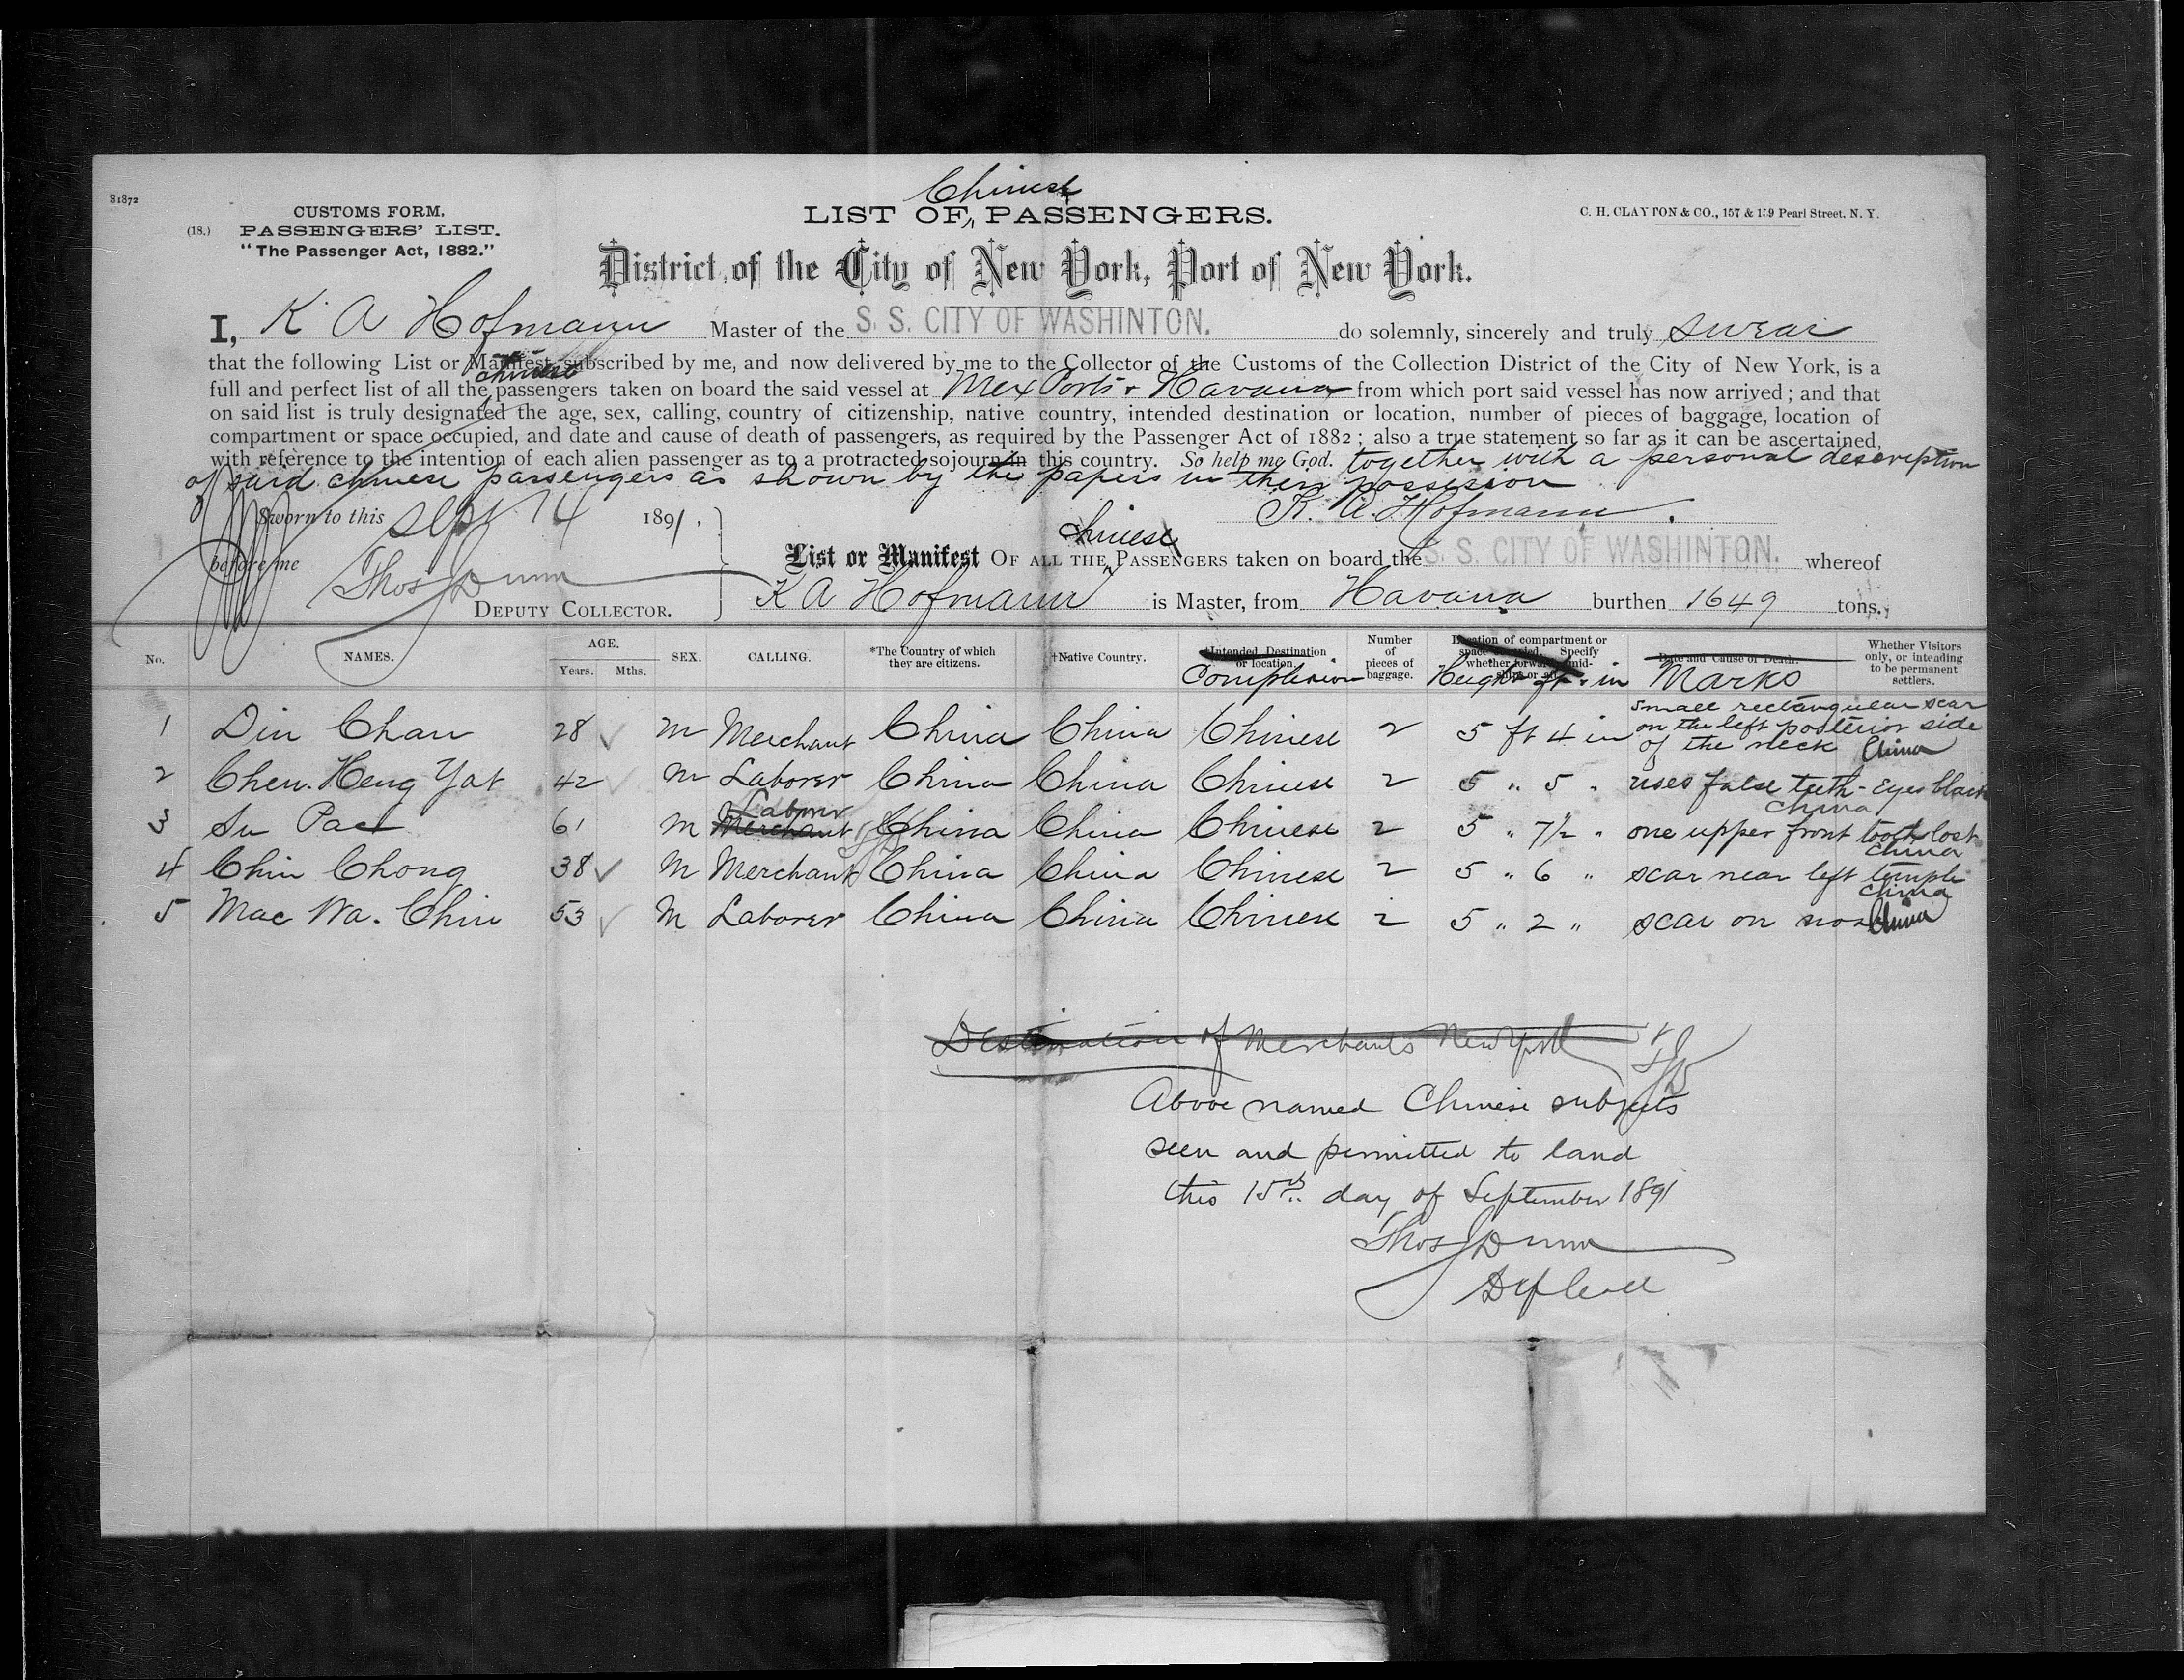 81872
CUSTOMS FORM.
(18.) PASSENGERS' LIST.
"The Passenger Act, 1882."
Chinese
LIST OF PASSENGERS.
C. H. CLAYTON & CO., 157 & 159 Pearl Street, N. Y.
District of the City of New York, Port of New York.
I, K A Hofmann Master of the S. S. CITY OF WASHINTON. do solemnly, sincerely and truly swear
that the following List or Manifest, subscribed by me, and now delivered by me to the Collector of the Customs of the Collection District of the City of New York, is a
chinese
full and perfect list of all the passengers taken on board the said vessel at Mex Ports & Havana from which port said vessel has now arrived; and that
on said list is truly designated the age, sex, calling, country of citizenship, native country, intended destination or location, number of pieces of baggage, location of
compartment or space occupied, and date and cause of death of passengers, as required by the Passenger Act of 1882; also a true statement so far as it can be ascertained,
with reference to the intention of each alien passenger as to a protracted sojourn in this country. So help me God. together with a personal description
of said chinese passengers as shown by the papers in their possession
Sworn to this Sept 14 1891.
K. A. Hofmann.
before me
Thos J Dunn
DEPUTY COLLECTOR.
chinese
List or Manifest OF ALL THE PASSENGERS taken on board the S. S. CITY OF WASHINTON. whereof
K A Hofmann is Master, from Havana burthen 1649 tons.
No. NAMES. AGE. Years. Mths. SEX. CALLING. *The Country of which they are citizens. †Native Country. ‡Intended Destination or location. Complexion Number of pieces of baggage. Location of compartment or space occupied. Specify whether forward, mid-ships or aft. Height ft & in Date and Cause of Death. Marks Whether Visitors only, or intending to be permanent settlers.
small rectangular scar
1 Din Chan 28 ✓ M Merchant China China Chinese 2 5 ft 4 in on the left posterior side
of the neck China
2 Chen. Heng Yat 42 ✓ M Laborer China China Chinese 2 5 " 5 " uses false teeth - Eyes black
Laborer China
3 Su Pac 61 M Merchant China China Chinese 2 5 " 7½ " one upper front tooth lost
China
4 Chin Chong 38 ✓ M Merchant China China Chinese 2 5 " 6 " scar near left temple
China
5 Mac Wa. Chin 53 ✓ M Laborer China China Chinese 2 5 " 2 " scar on nose China
Destination of Merchants New York
TJD
Above named Chinese subjects
seen and permitted to land
this 15th day of September 1891
Thos J Dunn
Dep Coll